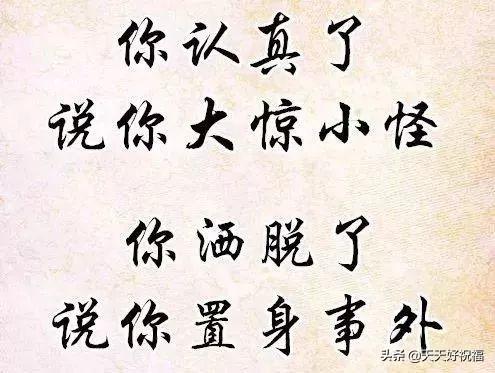 你认真了
说你大惊小怪
你洒脱了
说你置身事外
头条 @天天好祝福